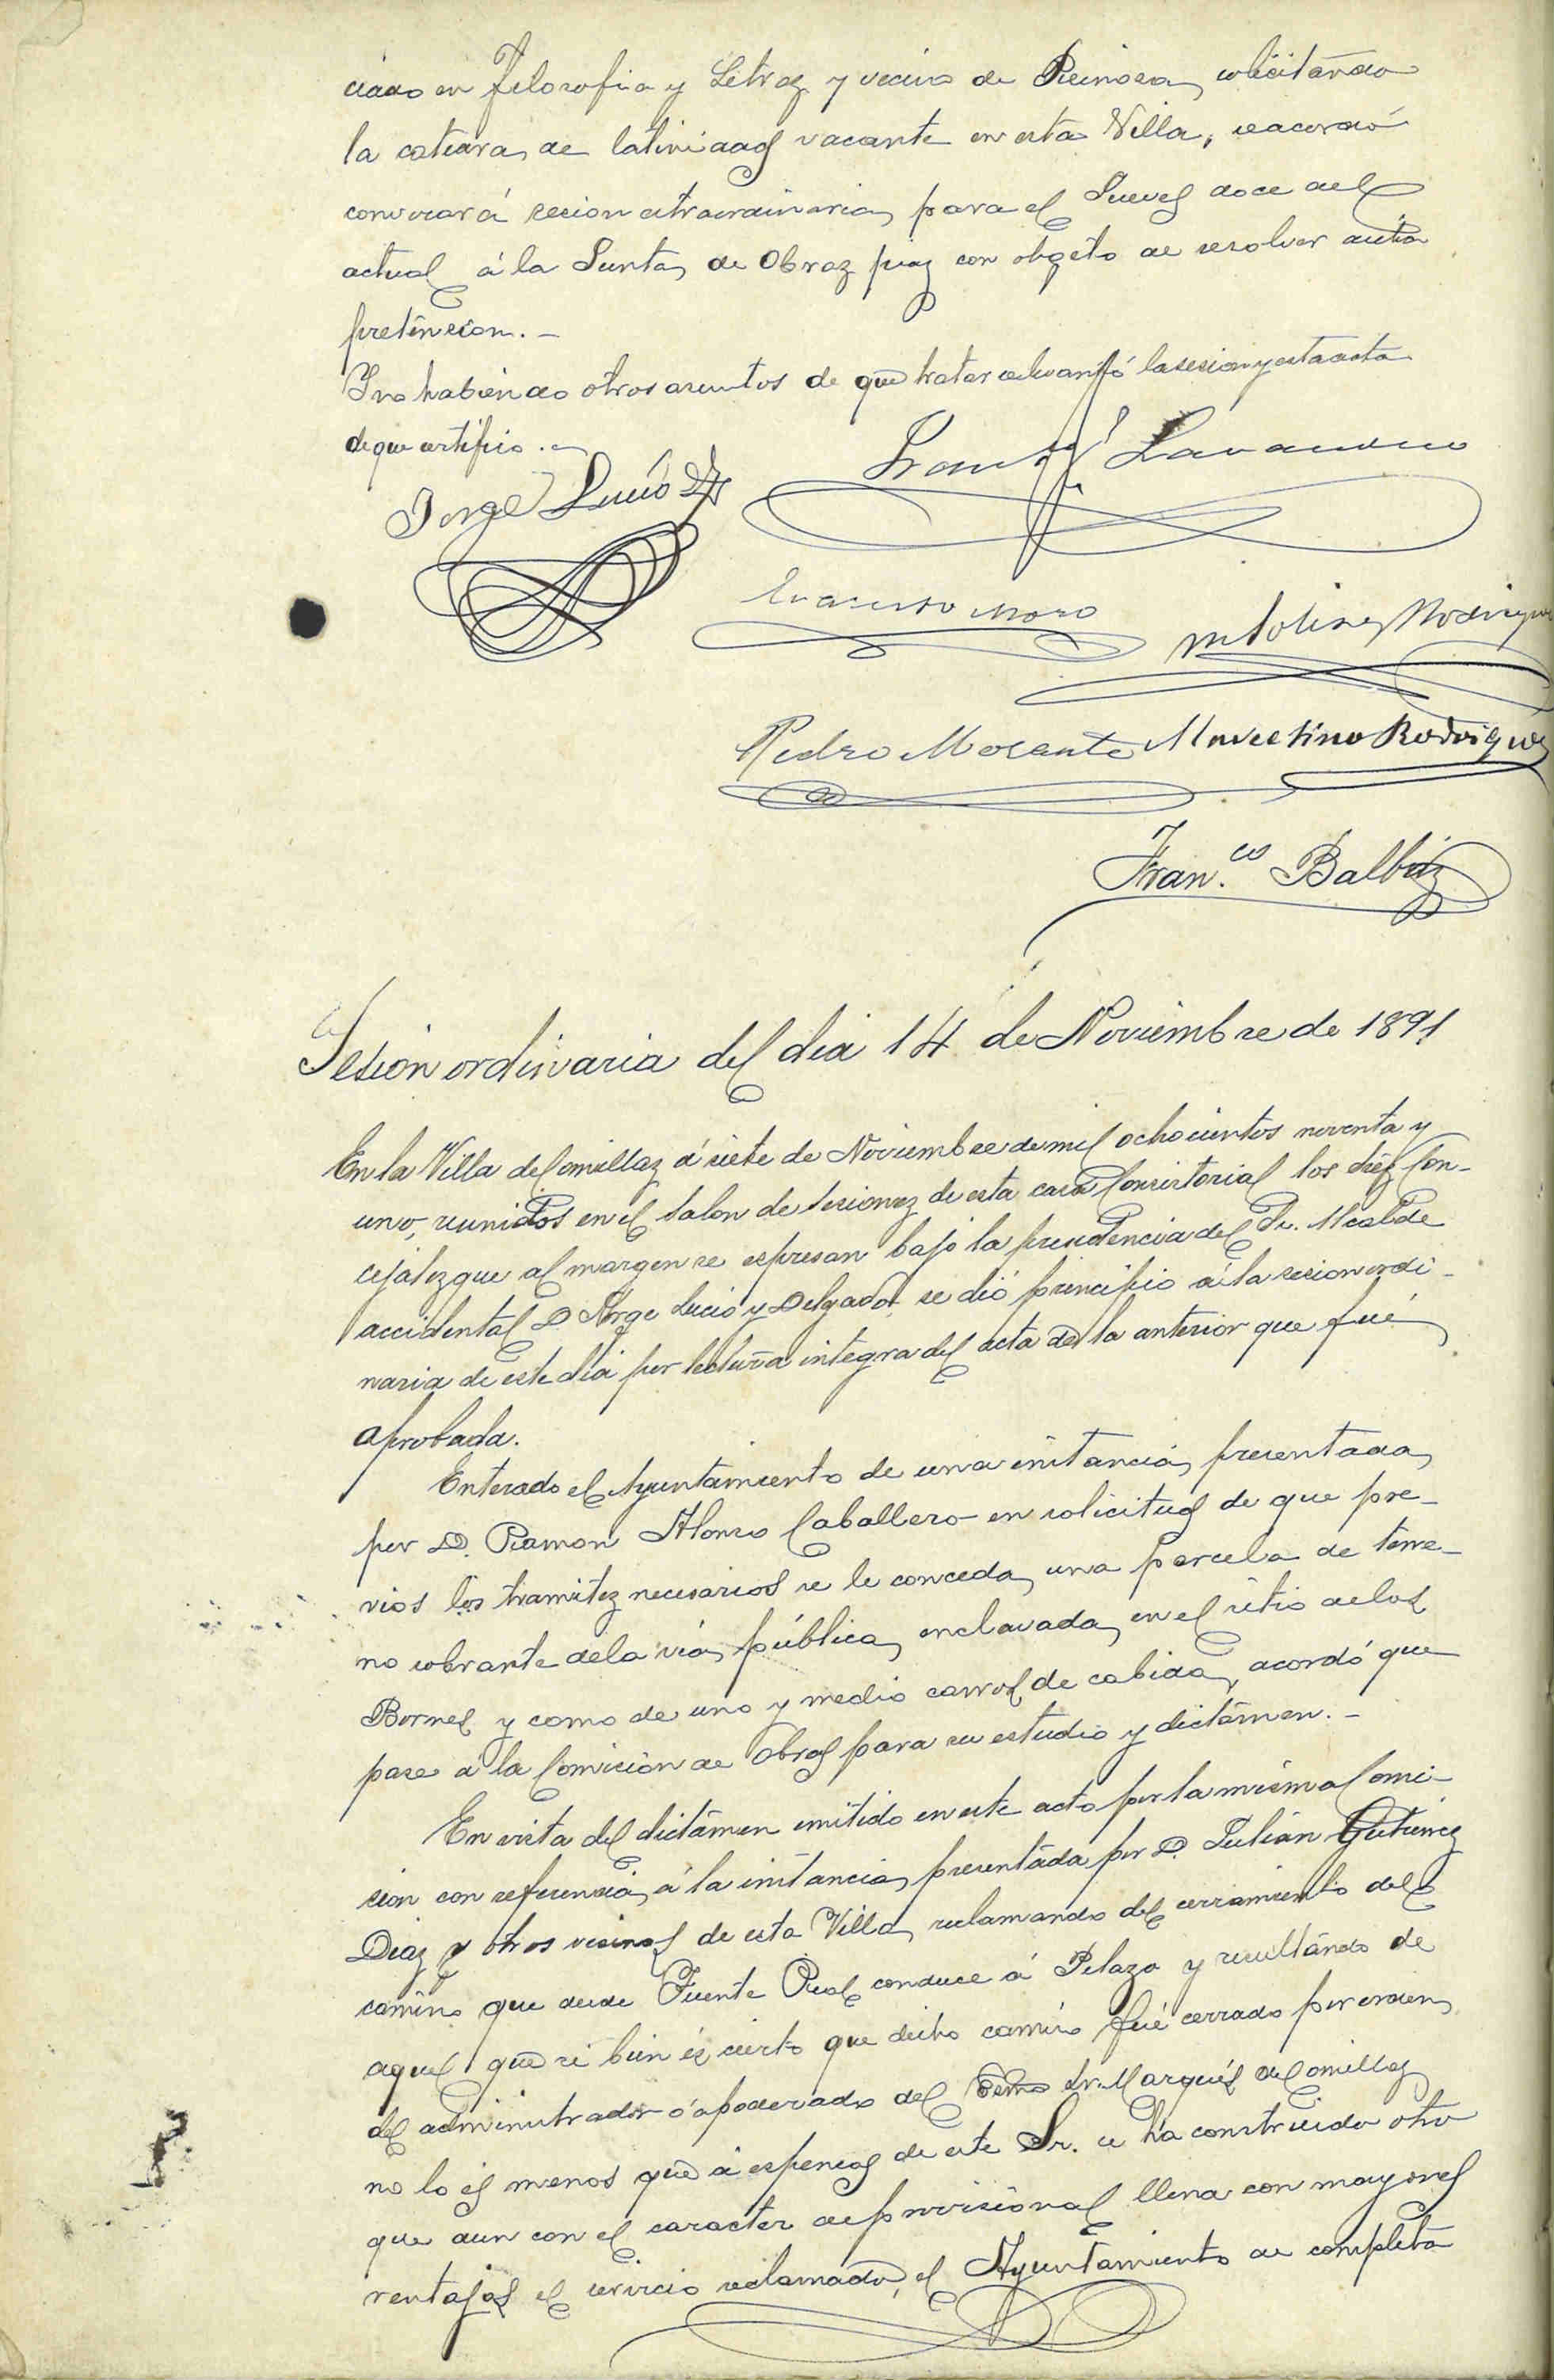 ciado en filosofia y Letras y vecino de Reinosa, solicitando
la catedra de latinidad vacante en esta Villa, se acordó
convocar á sesion extraordinaria para el Jueves doce del
actual á la Junta de Obras pias con objeto de resolver dicha
pretension.-
Y no habiendo otros asuntos de que tratar se levantó la sesion y esta acta
de que certifico.-
Jorge Lucio
Evaristo Moro
M Rodriguez
Pedro Morante Marcelino Rodriguez
Fran.co Balbás
Sesión ordinaria del dia 14 de Noviembre de 1891
En la Villa de Comillas á siete de Noviembre de mil ochocientos noventa y
uno, reunidos en el salon de sesiones de esta casa Consistorial los diez Con-
cejales que al margen se espresan bajo la presidencia del Sr. Alcalde
accidental D. Jorge Lucio y Delgado se dió principio á la sesion ordi-
naria de este dia por lectura integra del acta de la anterior que fué
aprobada.
Enterado el Ayuntamiento de una instancia presentada
por D. Ramon Alonso Caballero en solicitud de que pre-
vios los tramites necesarios se le conceda una parcela de terre-
no sobrante de la via pública enclavada en el sitio de los
Bornes y como de uno y medio carros de cabida, acordó que
pase á la Comisión de Obras para su estudio y dictámen.-
En vista del dictámen emitido en este acto por la misma Comi-
sion con referencia á la instancia presentada por D. Julián Gutierrez
Diaz y otros vecinos de esta Villa reclamando del cerramiento del
camino que desde Fuente Real conduce á Pelazo y resultando de
aquel que si bien és cierto que dicho camino fué cerrado por orden
del administrador ó apoderado del Excmo Sr. Marqués de Comillas
no lo es menos que á espensas de este Sr. se ha construido otro
que aun con el caracter de provisional llena con mayores
ventajas el servicio reclamado, el Ayuntamiento de completa